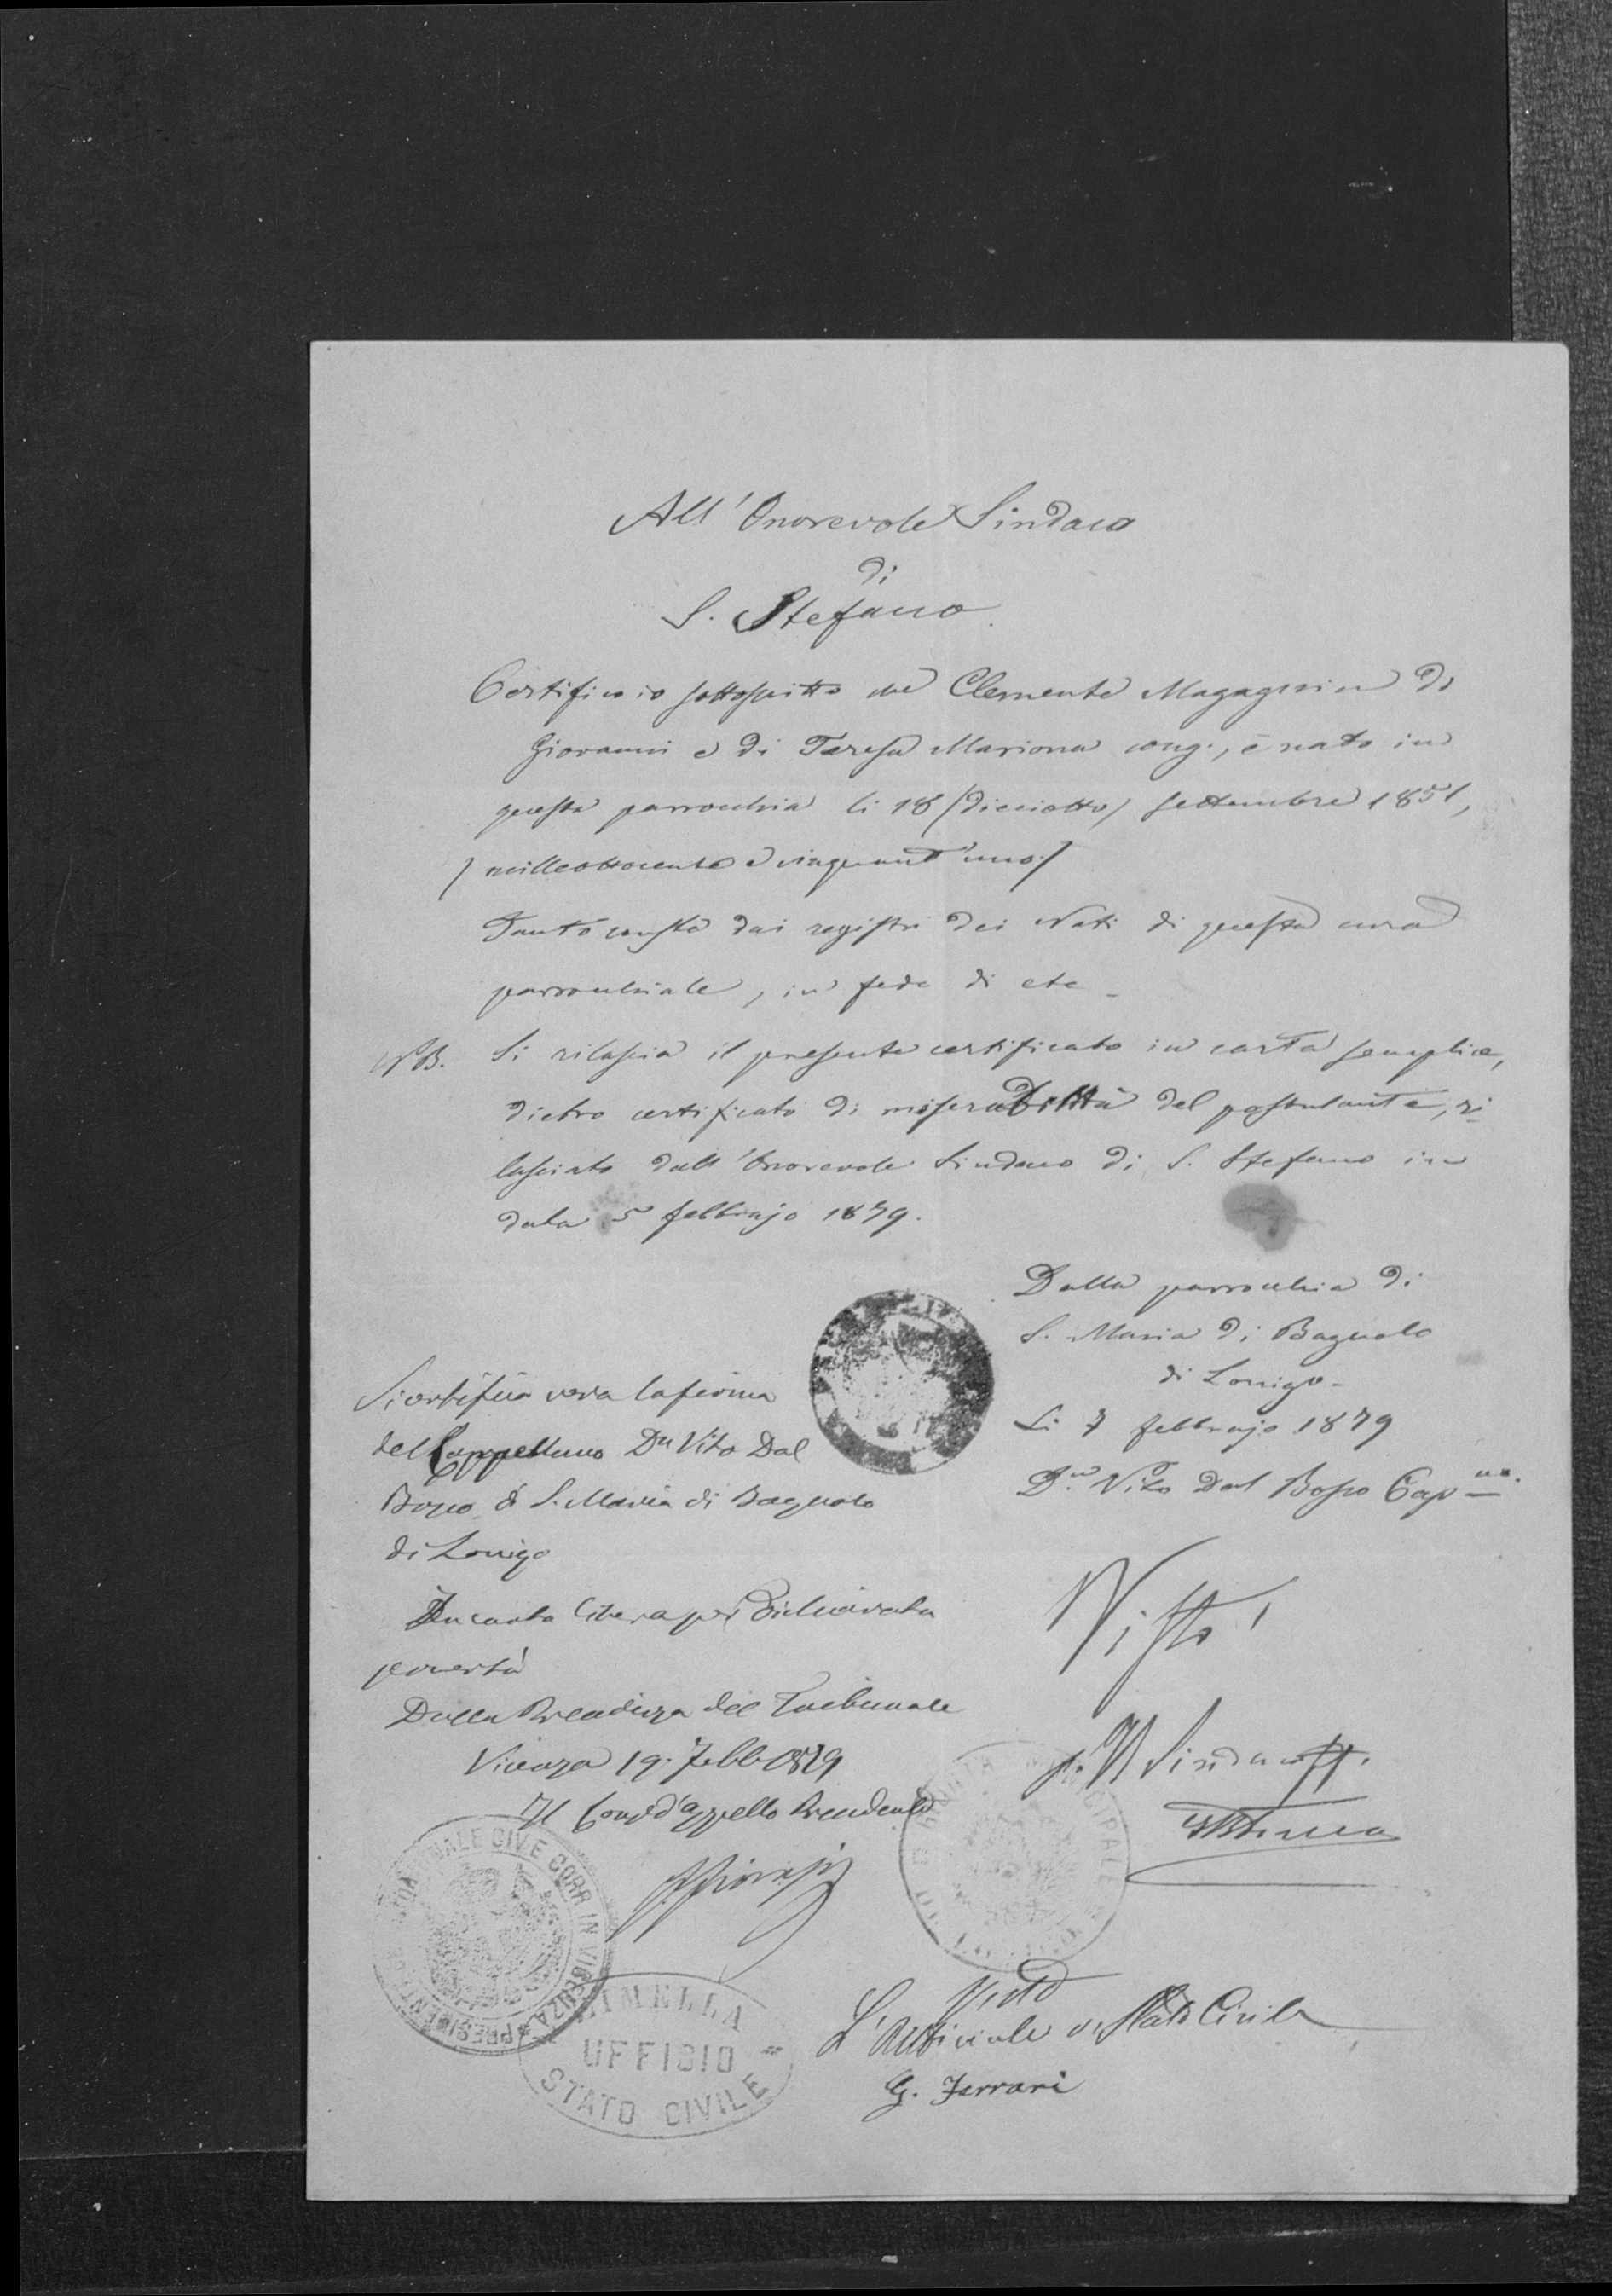 All'Onorevole Sindaco
di
S. Stefano.
Certifico io sottoscritto che Clemente Magagnin di
Giovanni e di Teresa Mariona cong., è nato in
questa parrocchia li 18 (dicciotto) settembre 1851,
(milleottocento e cinquant'uno.)
Tanto consta dai registri dei Nati di questa cura
parrochiale, in fede di che
NB. Si rilascia il presente certificato in carta semplice,
dietro certificato di miserabilità del postulante, ri-
lasciato dall'Onorevole Sindaco di S. Stefano in
data 5 febbrajo 1879.
Dalla parrochia di
S. Maria di Bagnolo
di Lonigo-
Li 7 febbrajo 1879
Dn. Vito Dal Bosco Cap.no
Si certifica vera la firma
del Cappellano Dn Vito Dal
Bosco di S. Maria di Bagnolo
di Lonigo
In carta libera per dichiarata
povertà
Dalla Presidenza del Tribunale
Vicenza 19. Febb 1879
Il Consid'appello Presidente
Visto
p. Il Sindaco ff.
TRIBUNALE CIV E CORR IN VICENZA
PRESIDENTE
MUNICIPALE
ZIMELLA
UFFICIO
STATO CIVILE
Visto
L'Ufficiale di Stato Civile
G. Ferrari